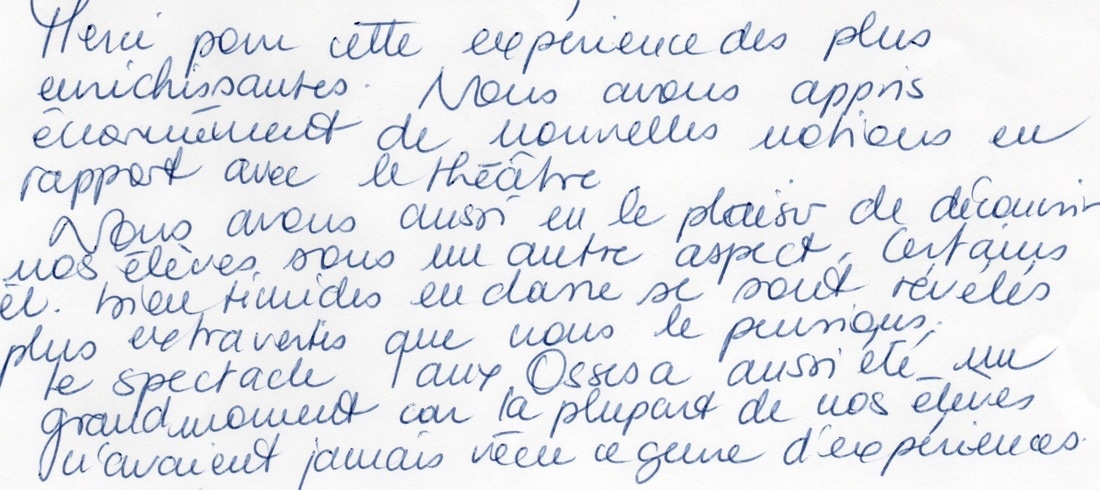 Merci pour cette expérience des plus
enrichissantes. Nous avons appris
énormément de nouvelles notions en
rapport avec le théâtre
Nous avons aussi eu le plaisir de découvrir
nos élèves sous un autre aspect. Certains
él. bien timides en classe se sont révélés
plus extravertis que nous le pensions.
Le spectacle aux Osses a aussi été un
grand moment car la plupart de nos élèves
n'avaient jamais vécu ce genre d'expériences.